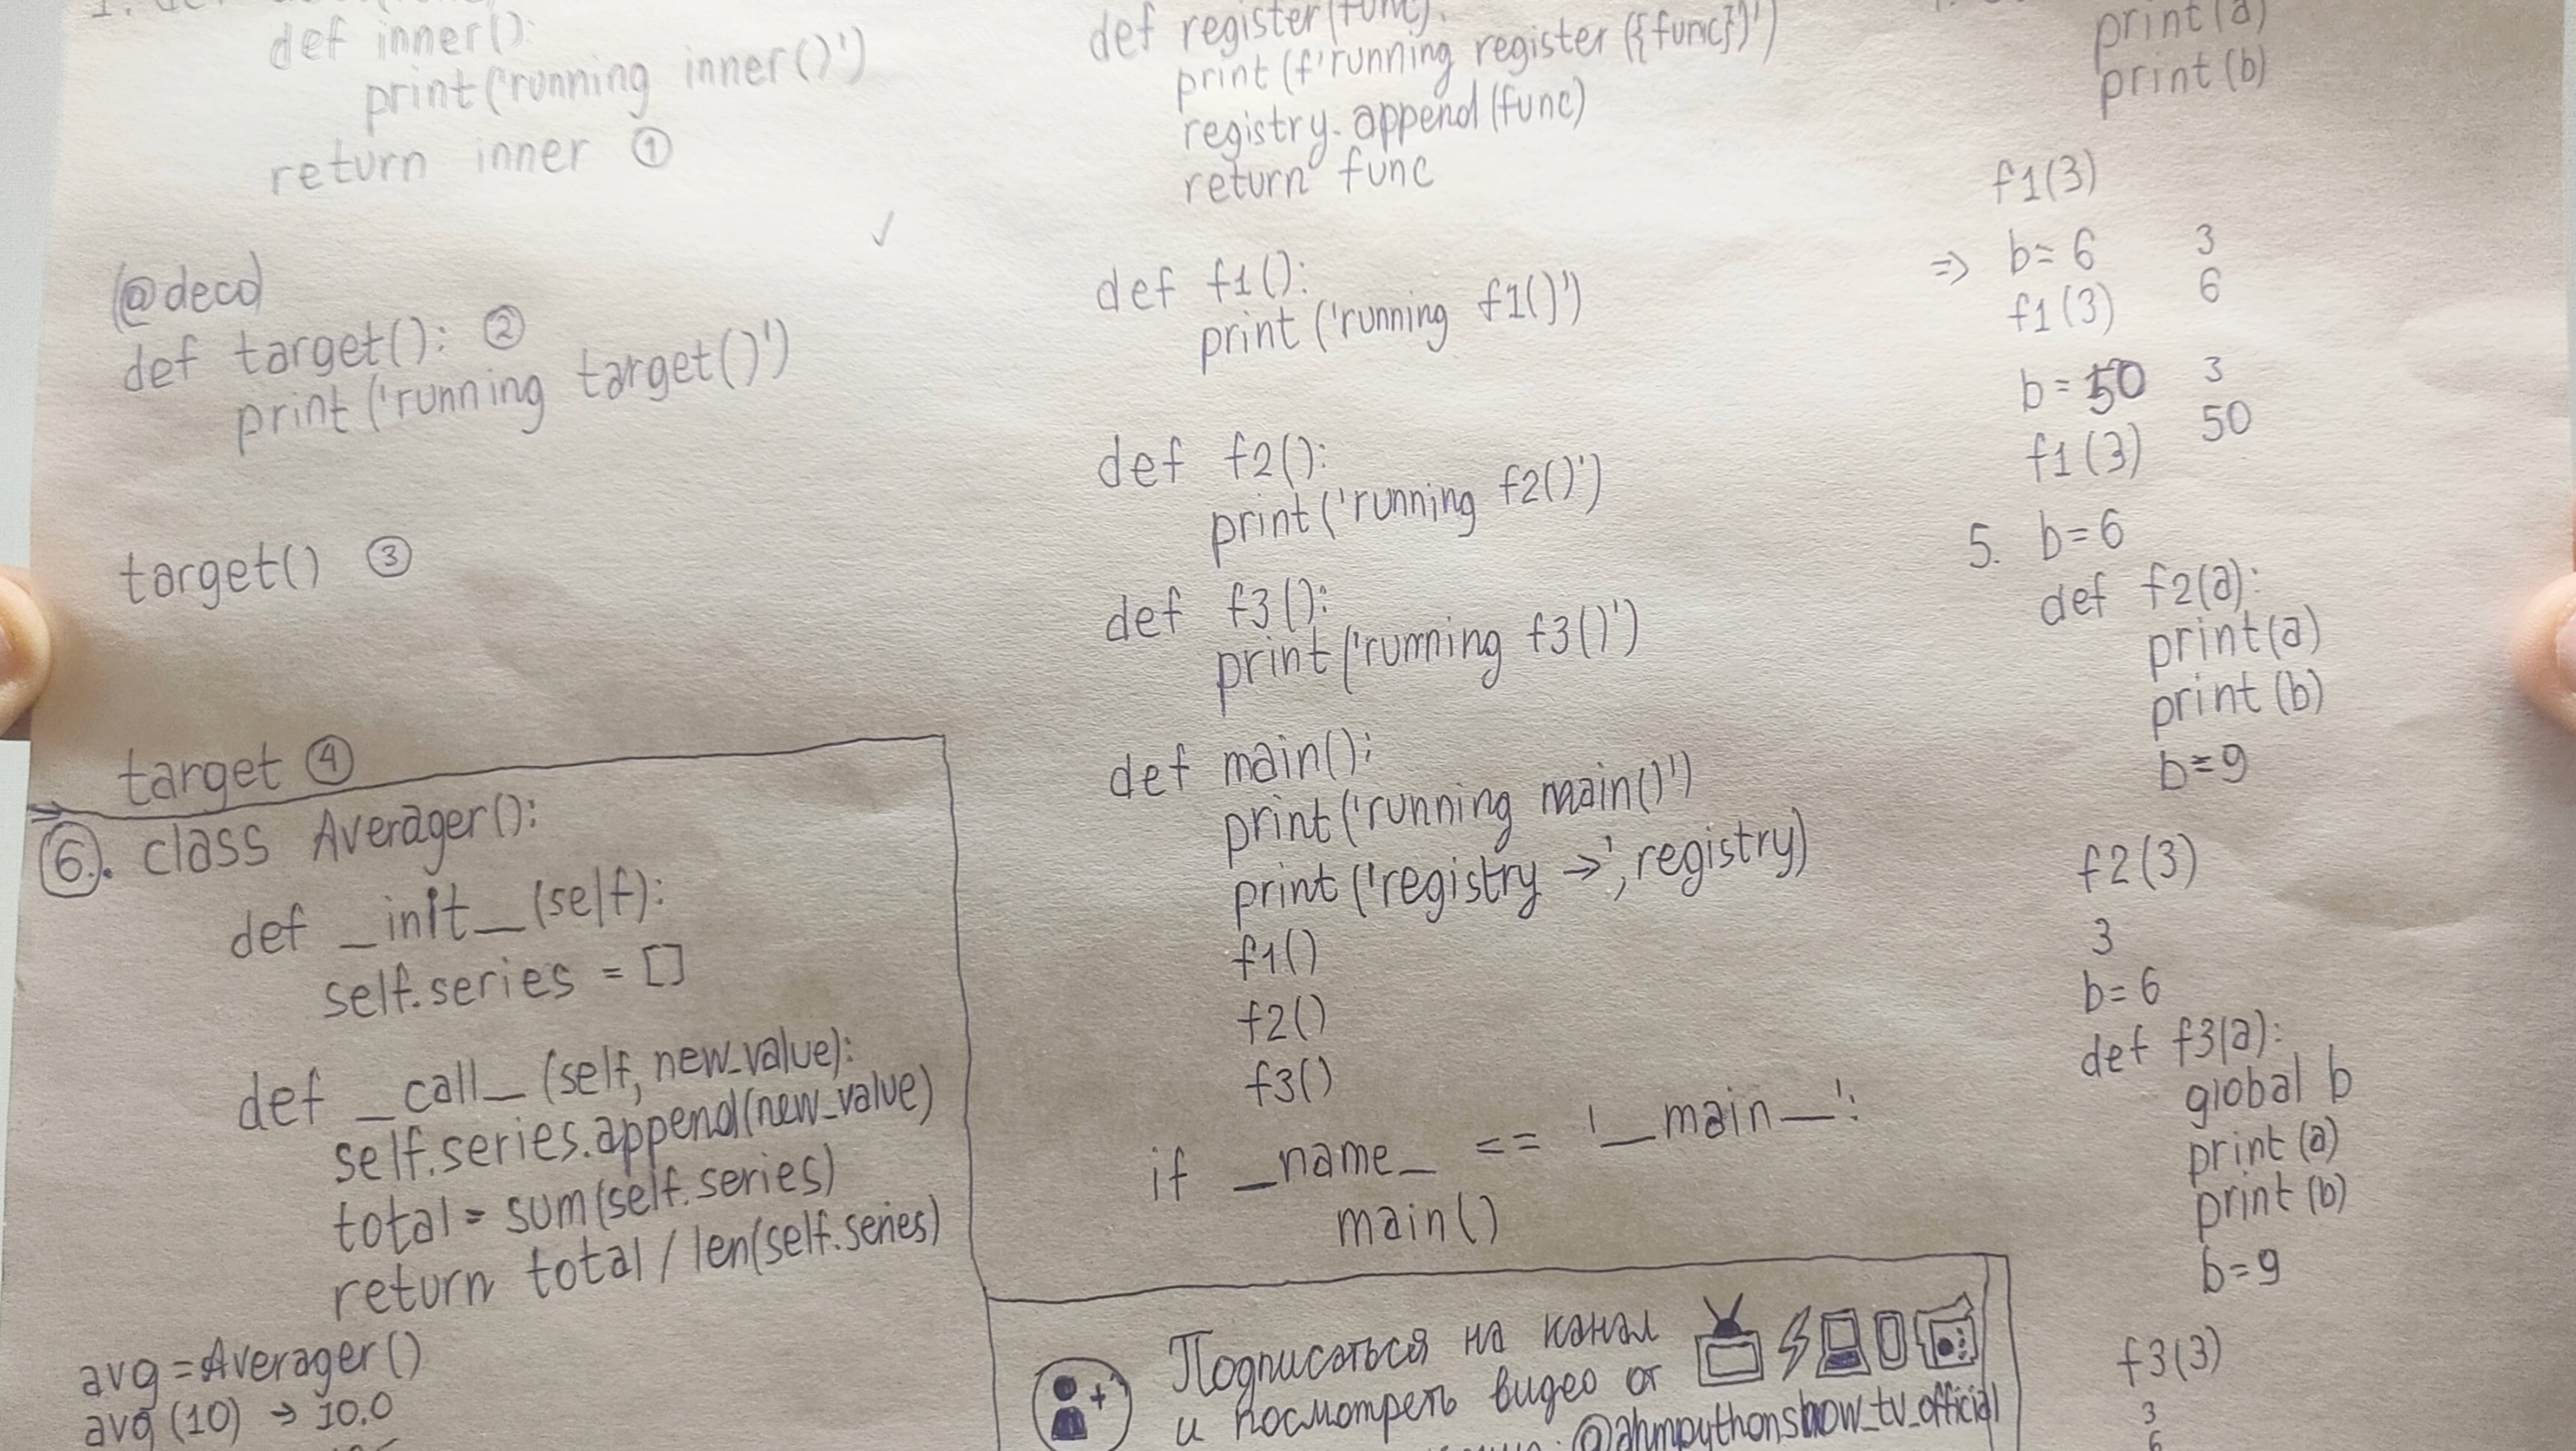 def inner():
print('running inner()')
return inner ①
@deco
def target(): ②
print('running target()')
target() ③
target ④
6. class Averager():
def _init_(self):
self.series = []
def _call_(self, new_value):
self.series.append(new_value)
total = sum(self.series)
return total / len(self.series)
avg = Averager()
avg (10) → 10.0
def register(func):
print(f'running register({func})')
registry.append(func)
return func
def f1():
print('running f1()')
def f2():
print('running f2()')
def f3():
print('running f3()')
def main():
print('running main()')
print('registry →', registry)
f1()
f2()
f3()
if _name_ == '_main_':
main()
Подписаться на канал
и посмотреть видео от
@ahmpythonshow_tv_official
print(a)
print(b)
f1(3)
⇒ b = 6 3
f1(3) 6
b = 50 3
f1(3) 50
5. b = 6
def f2(a):
print(a)
print(b)
b = 9
f2(3)
3
b = 6
def f3(a):
global b
print(a)
print(b)
b = 9
f3(3)
3
6